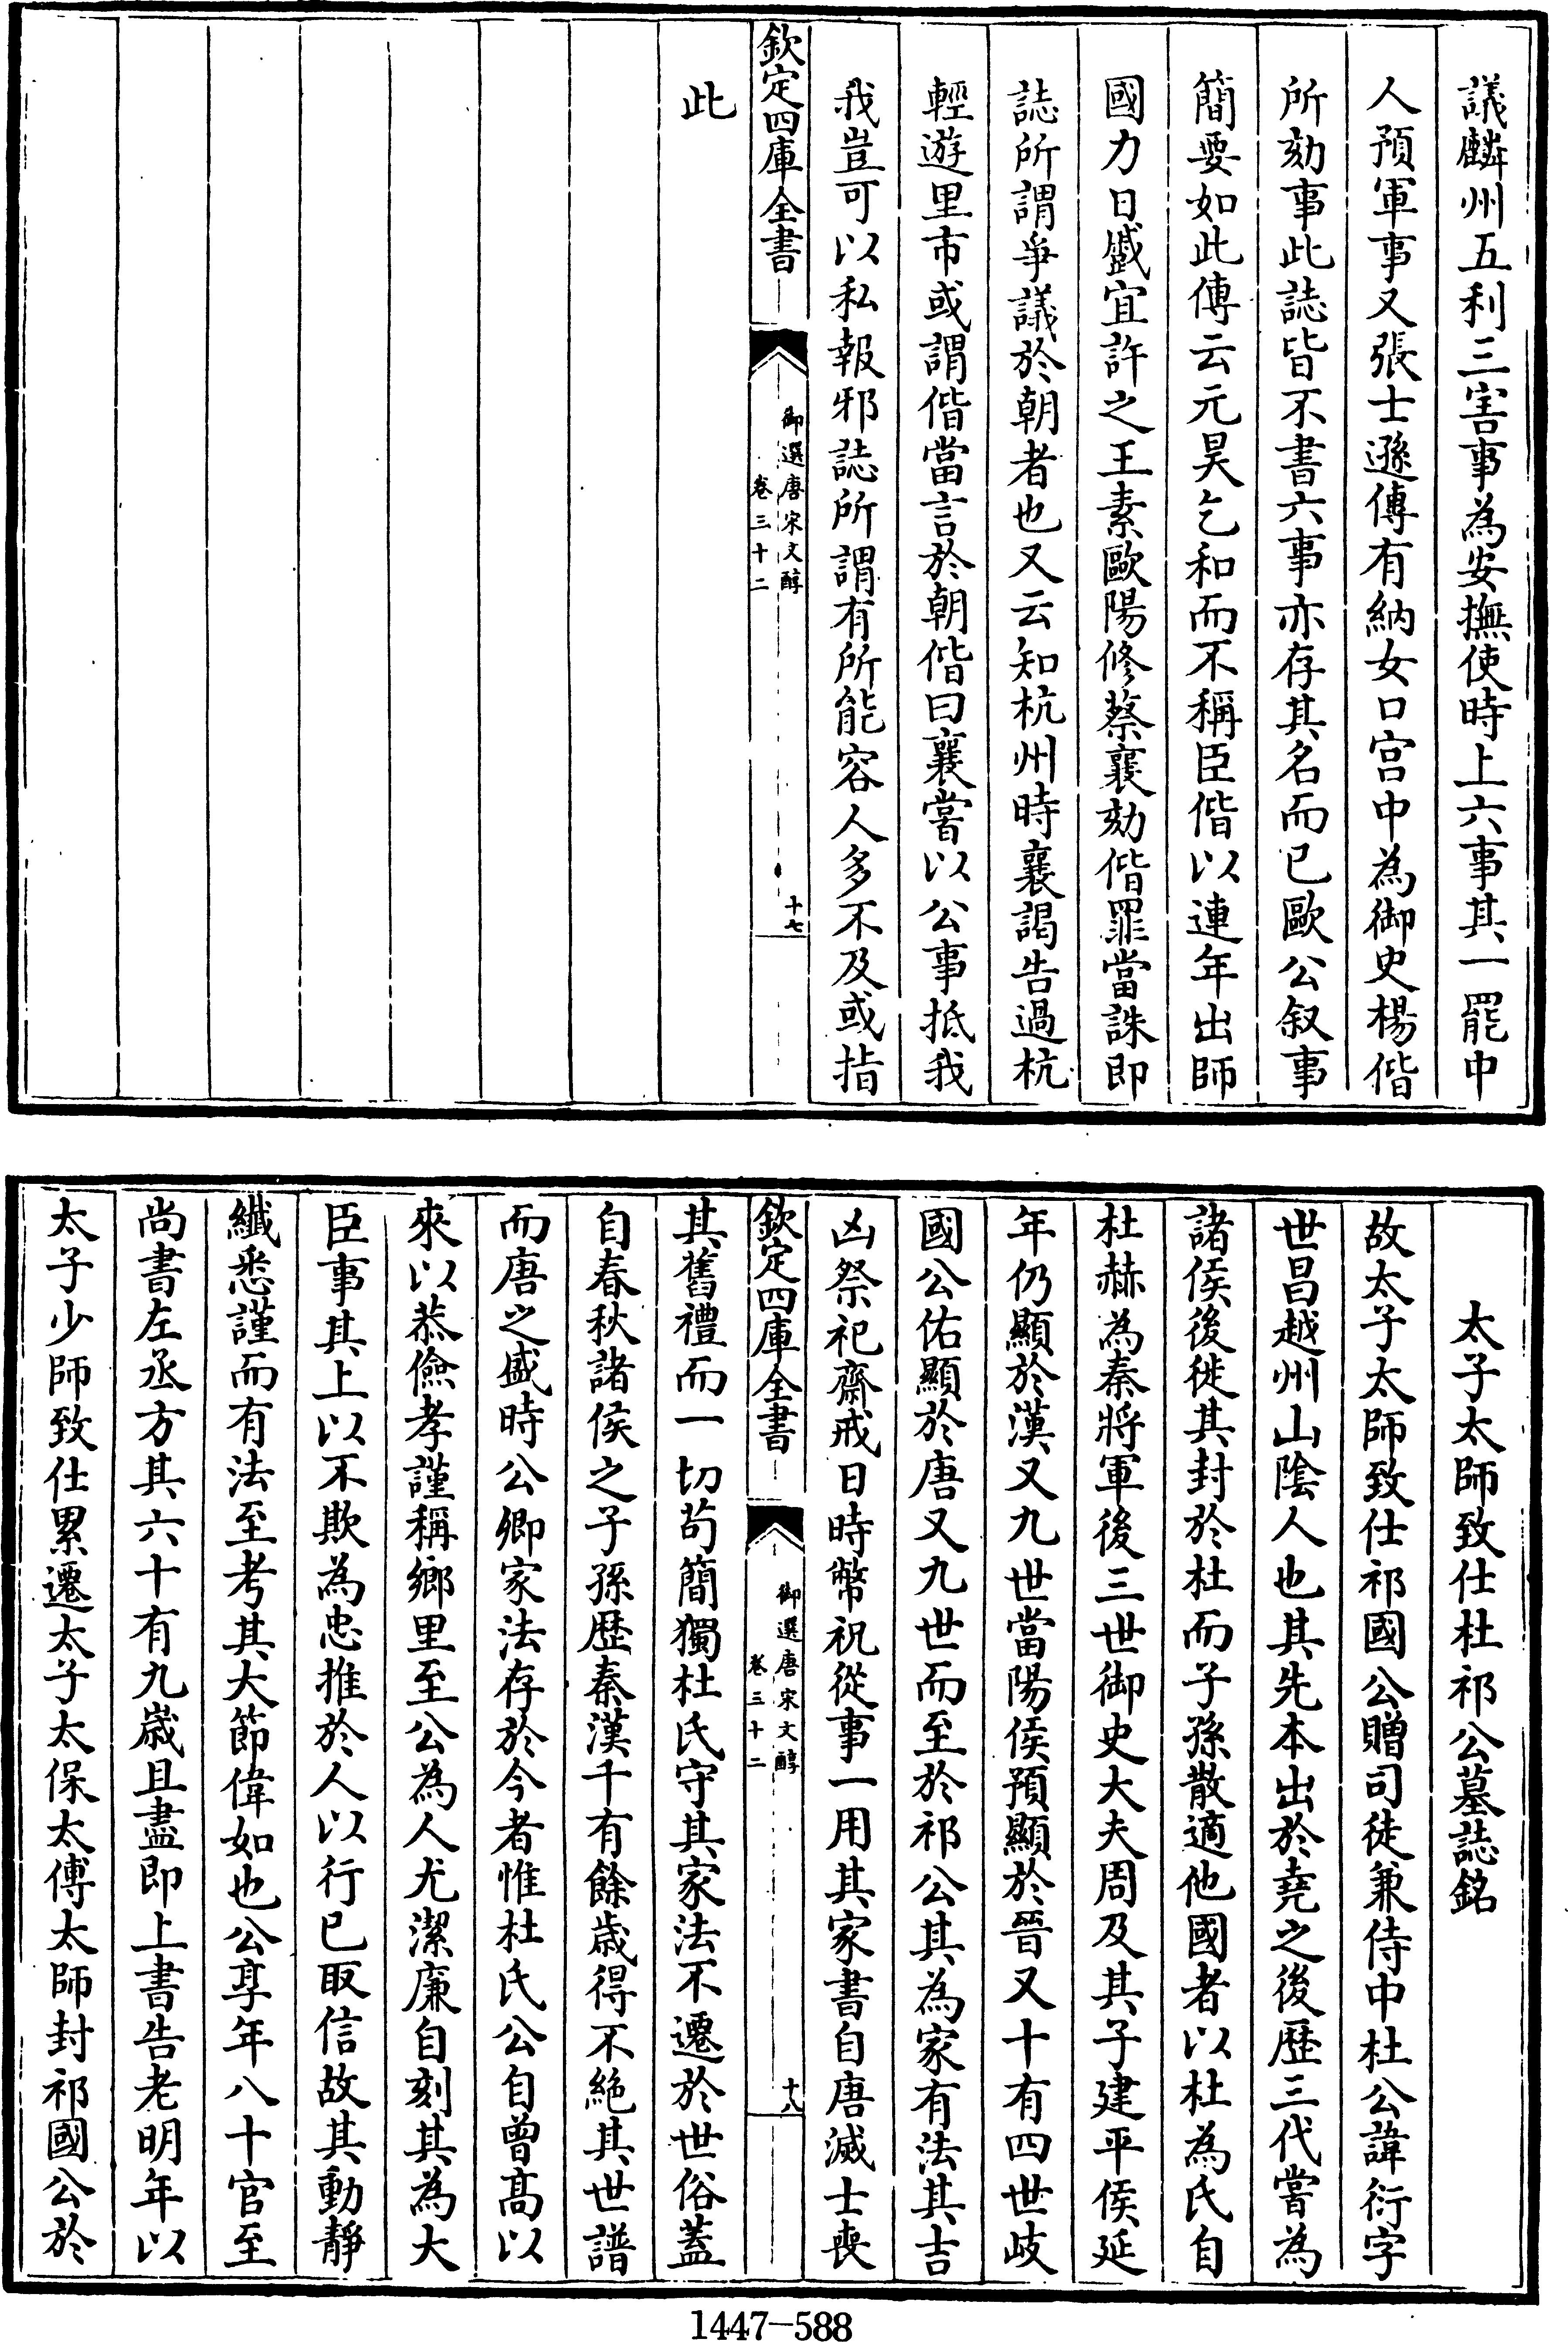 議麟州五利三害事為安撫使時上六事其一罷中
人預軍事又張士遜傳有納女口宫中為御史楊偕
所劾事此誌皆不書六事亦存其名而已歐公叙事
簡要如此傳云元昊乞和而不稱臣偕以連年出師
國力日蹙宜許之王素歐陽修蔡襄劾偕罪當誅即
誌所謂爭議於朝者也又云知杭州時襄謁告過杭
輕遊里市或謂偕當言於朝偕曰襄嘗以公事抵我
我豈可以私報邪誌所謂有所能容人多不及或指
欽定四庫全書
御選唐宋文醇
卷三十二
十七
此
太子太師致仕杜祁公墓誌銘
故太子太師致仕祁國公贈司徒兼侍中杜公諱衍字
世昌越州山陰人也其先本出於堯之後歴三代嘗為
諸侯後徙其封於杜而子孫散適他國者以杜為氏自
杜赫為秦將軍後三世御史大夫周及其子建平侯延
年仍顯於漢又九世當陽侯預顯於晉又十有四世岐
國公佑顯於唐又九世而至於祁公其為家有法其吉
凶祭祀齋戒日時幣祝從事一用其家書自唐滅士喪
欽定四庫全書
御選唐宋文醇
卷三十二
十八
其舊禮而一切茍簡獨杜氏守其家法不遷於世俗蓋
自春秋諸侯之子孫歴秦漢千有餘歳得不絶其世譜
而唐之盛時公卿家法存於今者惟杜氏公自曾髙以
來以恭儉孝謹稱鄉里至公為人尤潔廉自刻其為大
臣事其上以不欺為忠推於人以行已取信故其動靜
纖悉謹而有法至考其大節偉如也公享年八十官至
尚書左丞方其六十有九歳且盡即上書告老明年以
太子少師致仕累遷太子太保太傅太師封祁國公於
1447-588